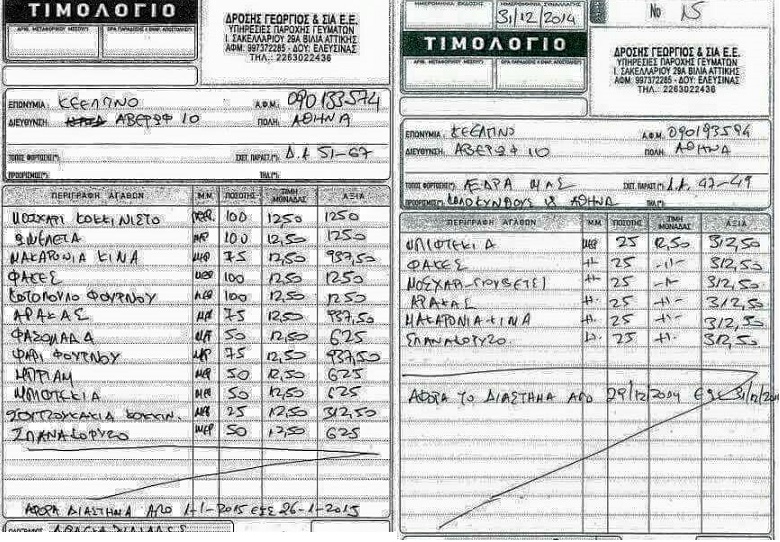 ΤΙΜΟΛΟΓΙΟ
ΔΡΟΣΗΣ ΓΕΩΡΓΙΟΣ & ΣΙΑ Ε.Ε.
ΥΠΗΡΕΣΙΕΣ ΠΑΡΟΧΗΣ ΓΕΥΜΑΤΩΝ
Ι. ΣΑΚΕΛΛΑΡΙΟΥ 29Α ΒΙΛΙΑ ΑΤΤΙΚΗΣ
ΑΦΜ: 997372285 - ΔΟΥ: ΕΛΕΥΣΙΝΑΣ
ΤΗΛ.: 2263022436
ΕΠΩΝΥΜΙΑ ΚΕΕΛΠΝΟ Α.Φ.Μ.: 090193594
ΔΙΕΥΘΥΝΣΗ: ΑΒΕΡΩΦ 10 ΠΟΛΗ: ΑΘΗΝΑ
ΤΟΠΟΣ ΦΟΡΤΩΣΗΣ(*): ΣΧΕΤ. ΠΑΡΑΣΤ.(*): Δ.Α 51-67
ΠΡΟΟΡΙΣΜΟΣ(*): ΤΗΛ.(*):
ΠΕΡΙΓΡΑΦΗ ΑΓΑΘΩΝ Μ.Μ. ΠΟΣΟΤΗΣ ΤΙΜΗ ΜΟΝΑΔΑΣ ΑΞΙΑ
ΜΟΣΧΑΡΙ ΚΟΚΚΙΝΙΣΤΟ ΜΕΡ 100 12,50 1250
ΟΜΕΛΕΤΑ ΜΕΡ 100 12,50 1250
ΜΑΚΑΡΟΝΙΑ ΚΙΜΑ ΜΕΡ 75 12,50 937,50
ΦΑΚΕΣ ΜΕΡ 100 12,50 1250
ΚΟΤΟΠΟΥΛΟ ΦΟΥΡΝΟΥ ΜΕΡ 100 12,50 1250
ΑΡΑΚΑΣ ΜΕΡ 75 12,50 937,50
ΦΑΣΟΛΑΔΑ ΜΕΡ 50 12,50 625
ΨΑΡΙ ΦΟΥΡΝΟΥ ΜΕΡ 75 12,50 937,50
ΜΠΡΙΑΜ ΜΕΡ 50 12,50 625
ΜΠΙΦΤΕΚΙΑ ΜΕΡ 50 12,50 625
ΣΟΥΤΖΟΥΚΑΚΙΑ ΚΟΚΚΙΝ. ΜΕΡ 25 12,50 312,50
ΣΠΑΝΑΚΟΡΥΖΟ ΜΕΡ 50 12,50 625
ΑΦΟΡΑ ΔΙΑΣΤΗΜΑ ΑΠΟ 1-1-2015 ΕΩΣ 26-1-2015
31/12/2014
No 15
ΤΙΜΟΛΟΓΙΟ
ΔΡΟΣΗΣ ΓΕΩΡΓΙΟΣ & ΣΙΑ Ε.Ε.
ΥΠΗΡΕΣΙΕΣ ΠΑΡΟΧΗΣ ΓΕΥΜΑΤΩΝ
Ι. ΣΑΚΕΛΛΑΡΙΟΥ 29Α ΒΙΛΙΑ ΑΤΤΙΚΗΣ
ΑΦΜ: 997372285 - ΔΟΥ: ΕΛΕΥΣΙΝΑΣ
ΤΗΛ.: 2263022436
ΕΠΩΝΥΜΙΑ: ΚΕΕΛΠΝΟ Α.Φ.Μ.: 090193594
ΔΙΕΥΘΥΝΣΗ: ΑΒΕΡΩΦ 10 ΠΟΛΗ: ΑΘΗΝΑ
ΤΟΠΟΣ ΦΟΡΤΩΣΗΣ(*): ΕΔΡΑ ΜΑΣ ΣΧΕΤ. ΠΑΡΑΣΤ.(*): Δ.Α. 47-49
ΠΡΟΟΡΙΣΜΟΣ(*): ΑΘΗΝΑ ΤΗΛ.(*):
ΠΕΡΙΓΡΑΦΗ ΑΓΑΘΩΝ Μ.Μ. ΠΟΣΟΤΗΣ ΤΙΜΗ ΜΟΝΑΔΑΣ ΑΞΙΑ
ΜΠΙΦΤΕΚΙΑ ΜΕΡ 25 12,50 312,50
ΦΑΚΕΣ -//- 25 -//- 312,50
ΜΟΣΧΑΡΙ-ΓΙΟΥΒΕΤΣΙ -//- 25 -//- 312,50
ΑΡΑΚΑΣ -//- 25 -//- 312,50
ΜΑΚΑΡΟΝΙΑ-ΚΙΜΑ -//- 25 -//- 312,50
ΣΠΑΝΑΚΟΡΥΖΟ -//- 25 -//- 312,50
ΑΦΟΡΑ ΤΟ ΔΙΑΣΤΗΜΑ ΑΠΟ 29/12/2014 ΕΩΣ 31/12/201